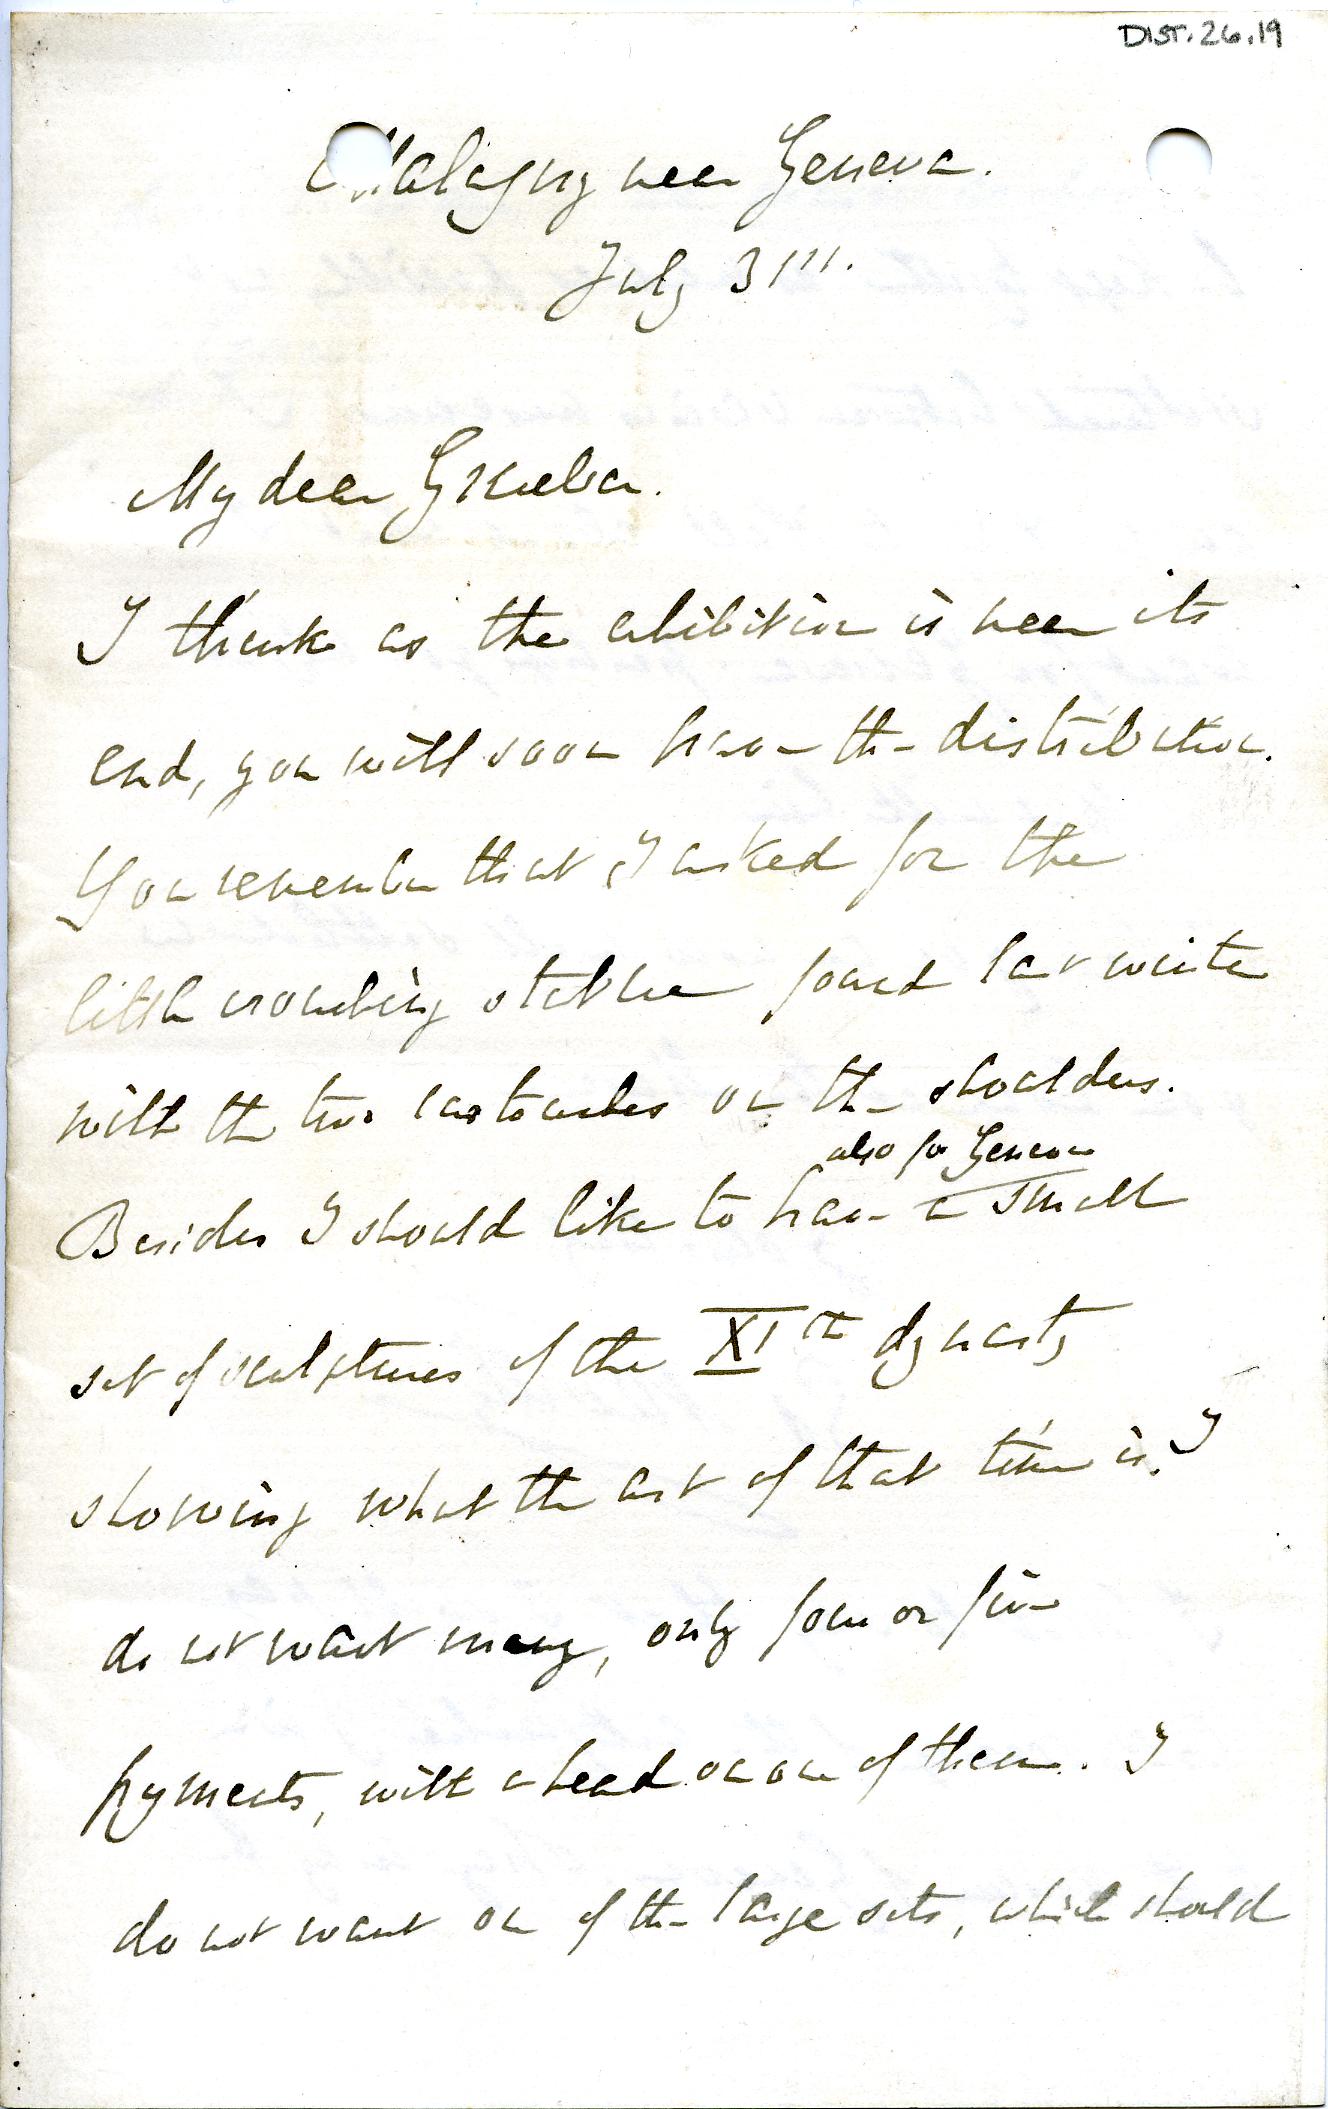 DIST. 26.19
Malagny near Geneva.
July 31st.
My dear Grueber.
I think as the exhibition is near its
end, you will soon have the distribution.
You remember that I asked for the
little crouching statue found last winter
with the two cartouches on the shoulders.
also for Geneva
Besides I should like to have a small
set of sculptures of the XIth dynasty
showing what the art of that time is. I
do not want many, only four or five
fragments, with a head on one of them. I
do not want one of the large sets, which should